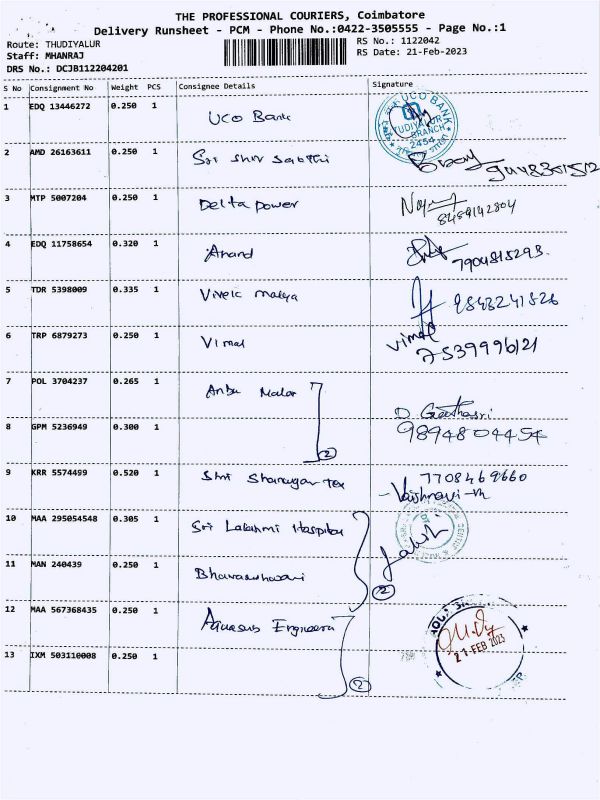 THE PROFESSIONAL COURIERS, Coimbatore
Delivery Runsheet - PCM - Phone No.:0422-3505555 - Page No.:1
Route: THUDIYALUR
Staff: MHANRAJ
DRS No.: DCJB112204201
RS No.: 1122042
RS Date: 21-Feb-2023
S No Consignment No Weight PCS Consignee Details Signature
1 EDQ 13446272 0.250 1 UCO Bank
UCO BANK
TUDIYALUR
BRANCH
2454
2 AMD 26163611 0.250 1 Sri Shiv Sakthi
3 MTP 5007204 0.250 1 Delta power
8489142804
4 EDQ 11758654 0.320 1 Anand
7904815293.
5 TDR 5398009 0.335 1 Vivek
9843241526
6 TRP 6879273 0.250 1 Vimal vimal
7539996121
7 POL 3704237 0.265 1 Anbu Malar
8 GPM 5236949 0.300 1 D. Geethasri
9894804454
2
9 KRR 5574499 0.520 1 Shri Shanmugar tex 7708469660
Vaishnavi
10 MAA 295054548 0.305 1 Sri Lakshmi Hospital
11 MAN 240439 0.250 1 Bhuvaneshwari
2
12 MAA 567368435 0.250 1 Engineers
21 FEB 2023
13 IXM 503110008 0.250 1
2